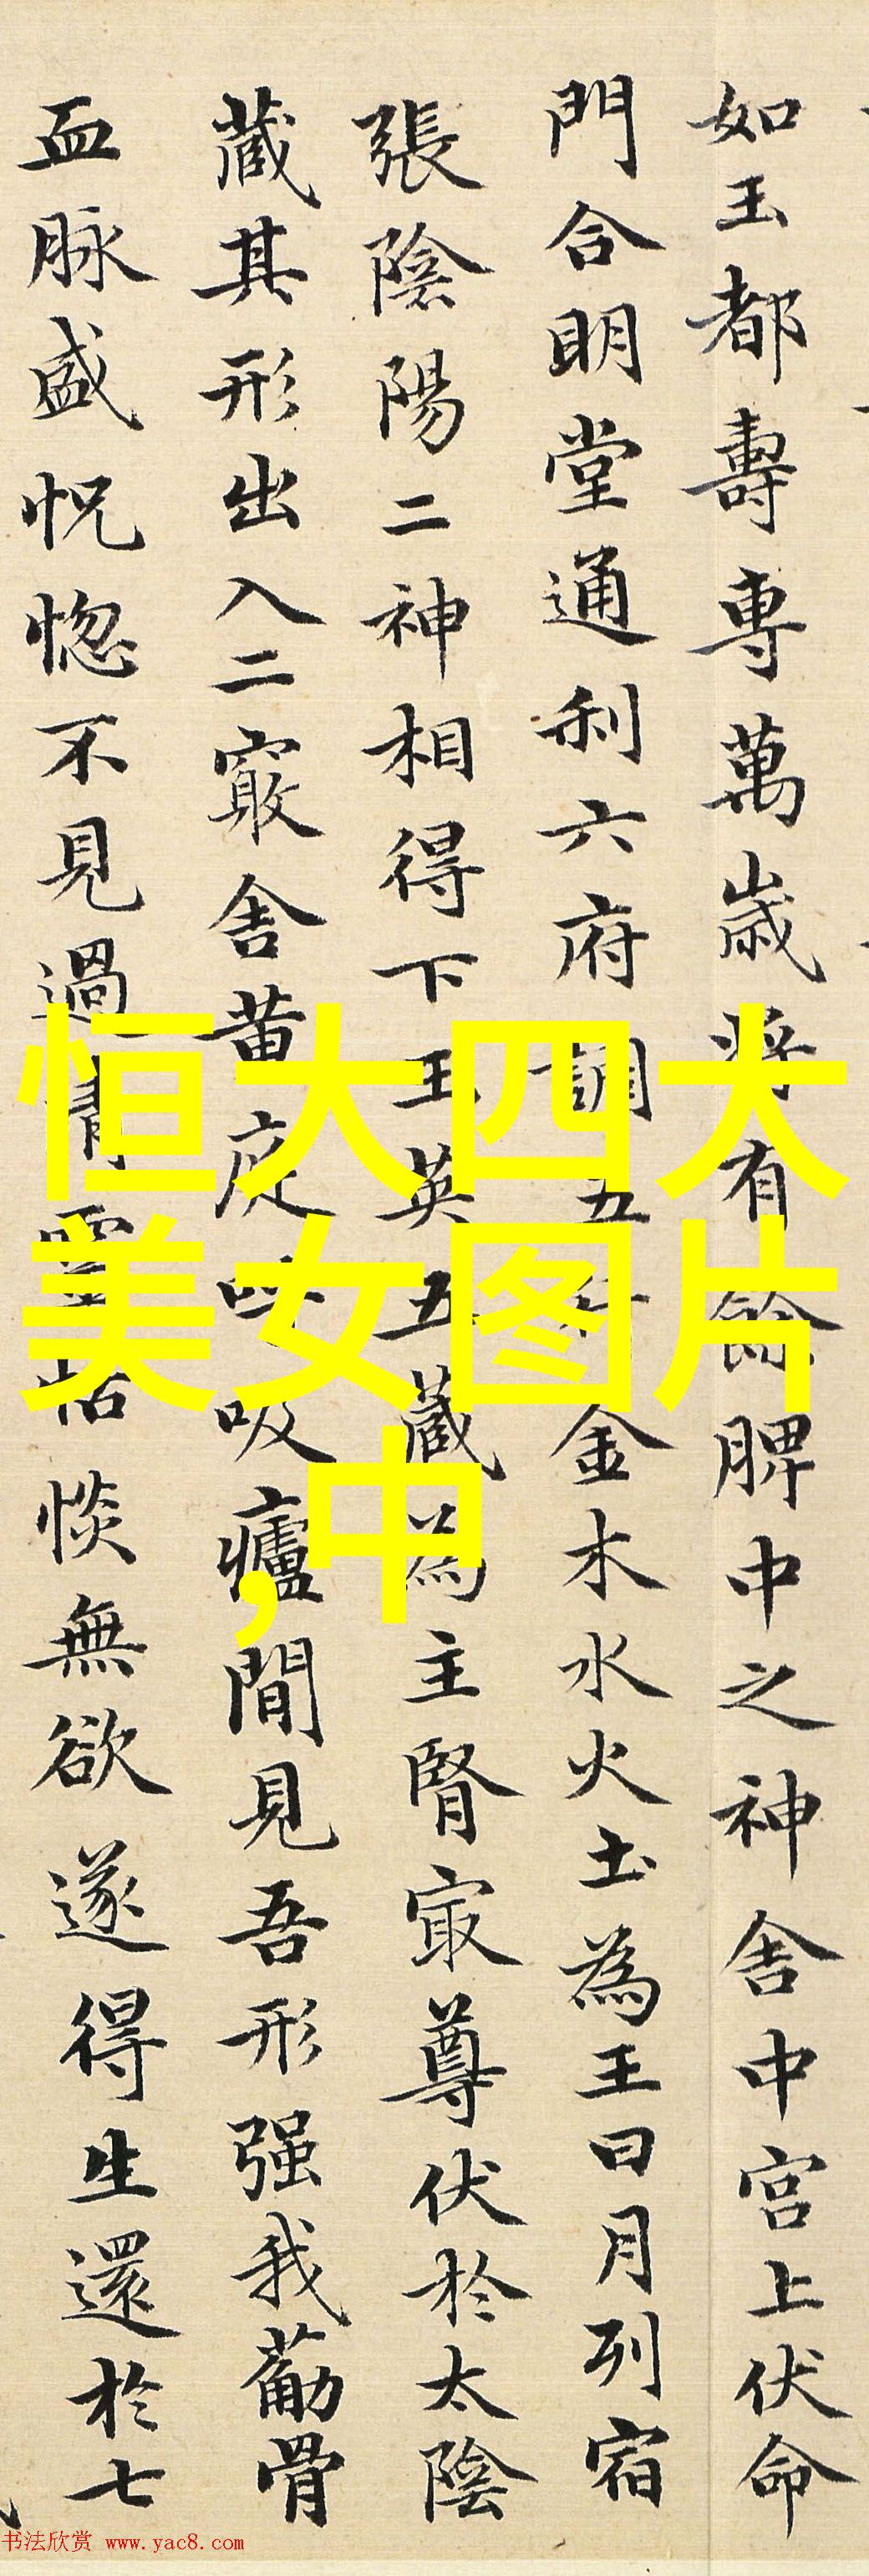 如玉都壽專萬歲將有餘脾中之神舍中宮上伏命
門合明堂通利六府調五行金木水火土為王日月列宿
張陰陽二神相得下玉英五藏為主腎㝡尊伏於太陰
藏其形出入二竅舍黄庭呼吸廬間見吾形强我葋骨
血脉盛怳惚不見過清靈恬惔無欲遂得生還於七
恒大四大
美女图片
,中
书法欣赏 www.yac8.com